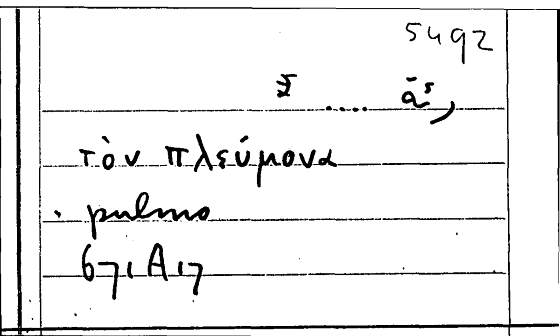 5492
τὸν πλεύμονα
pulmo
671A17